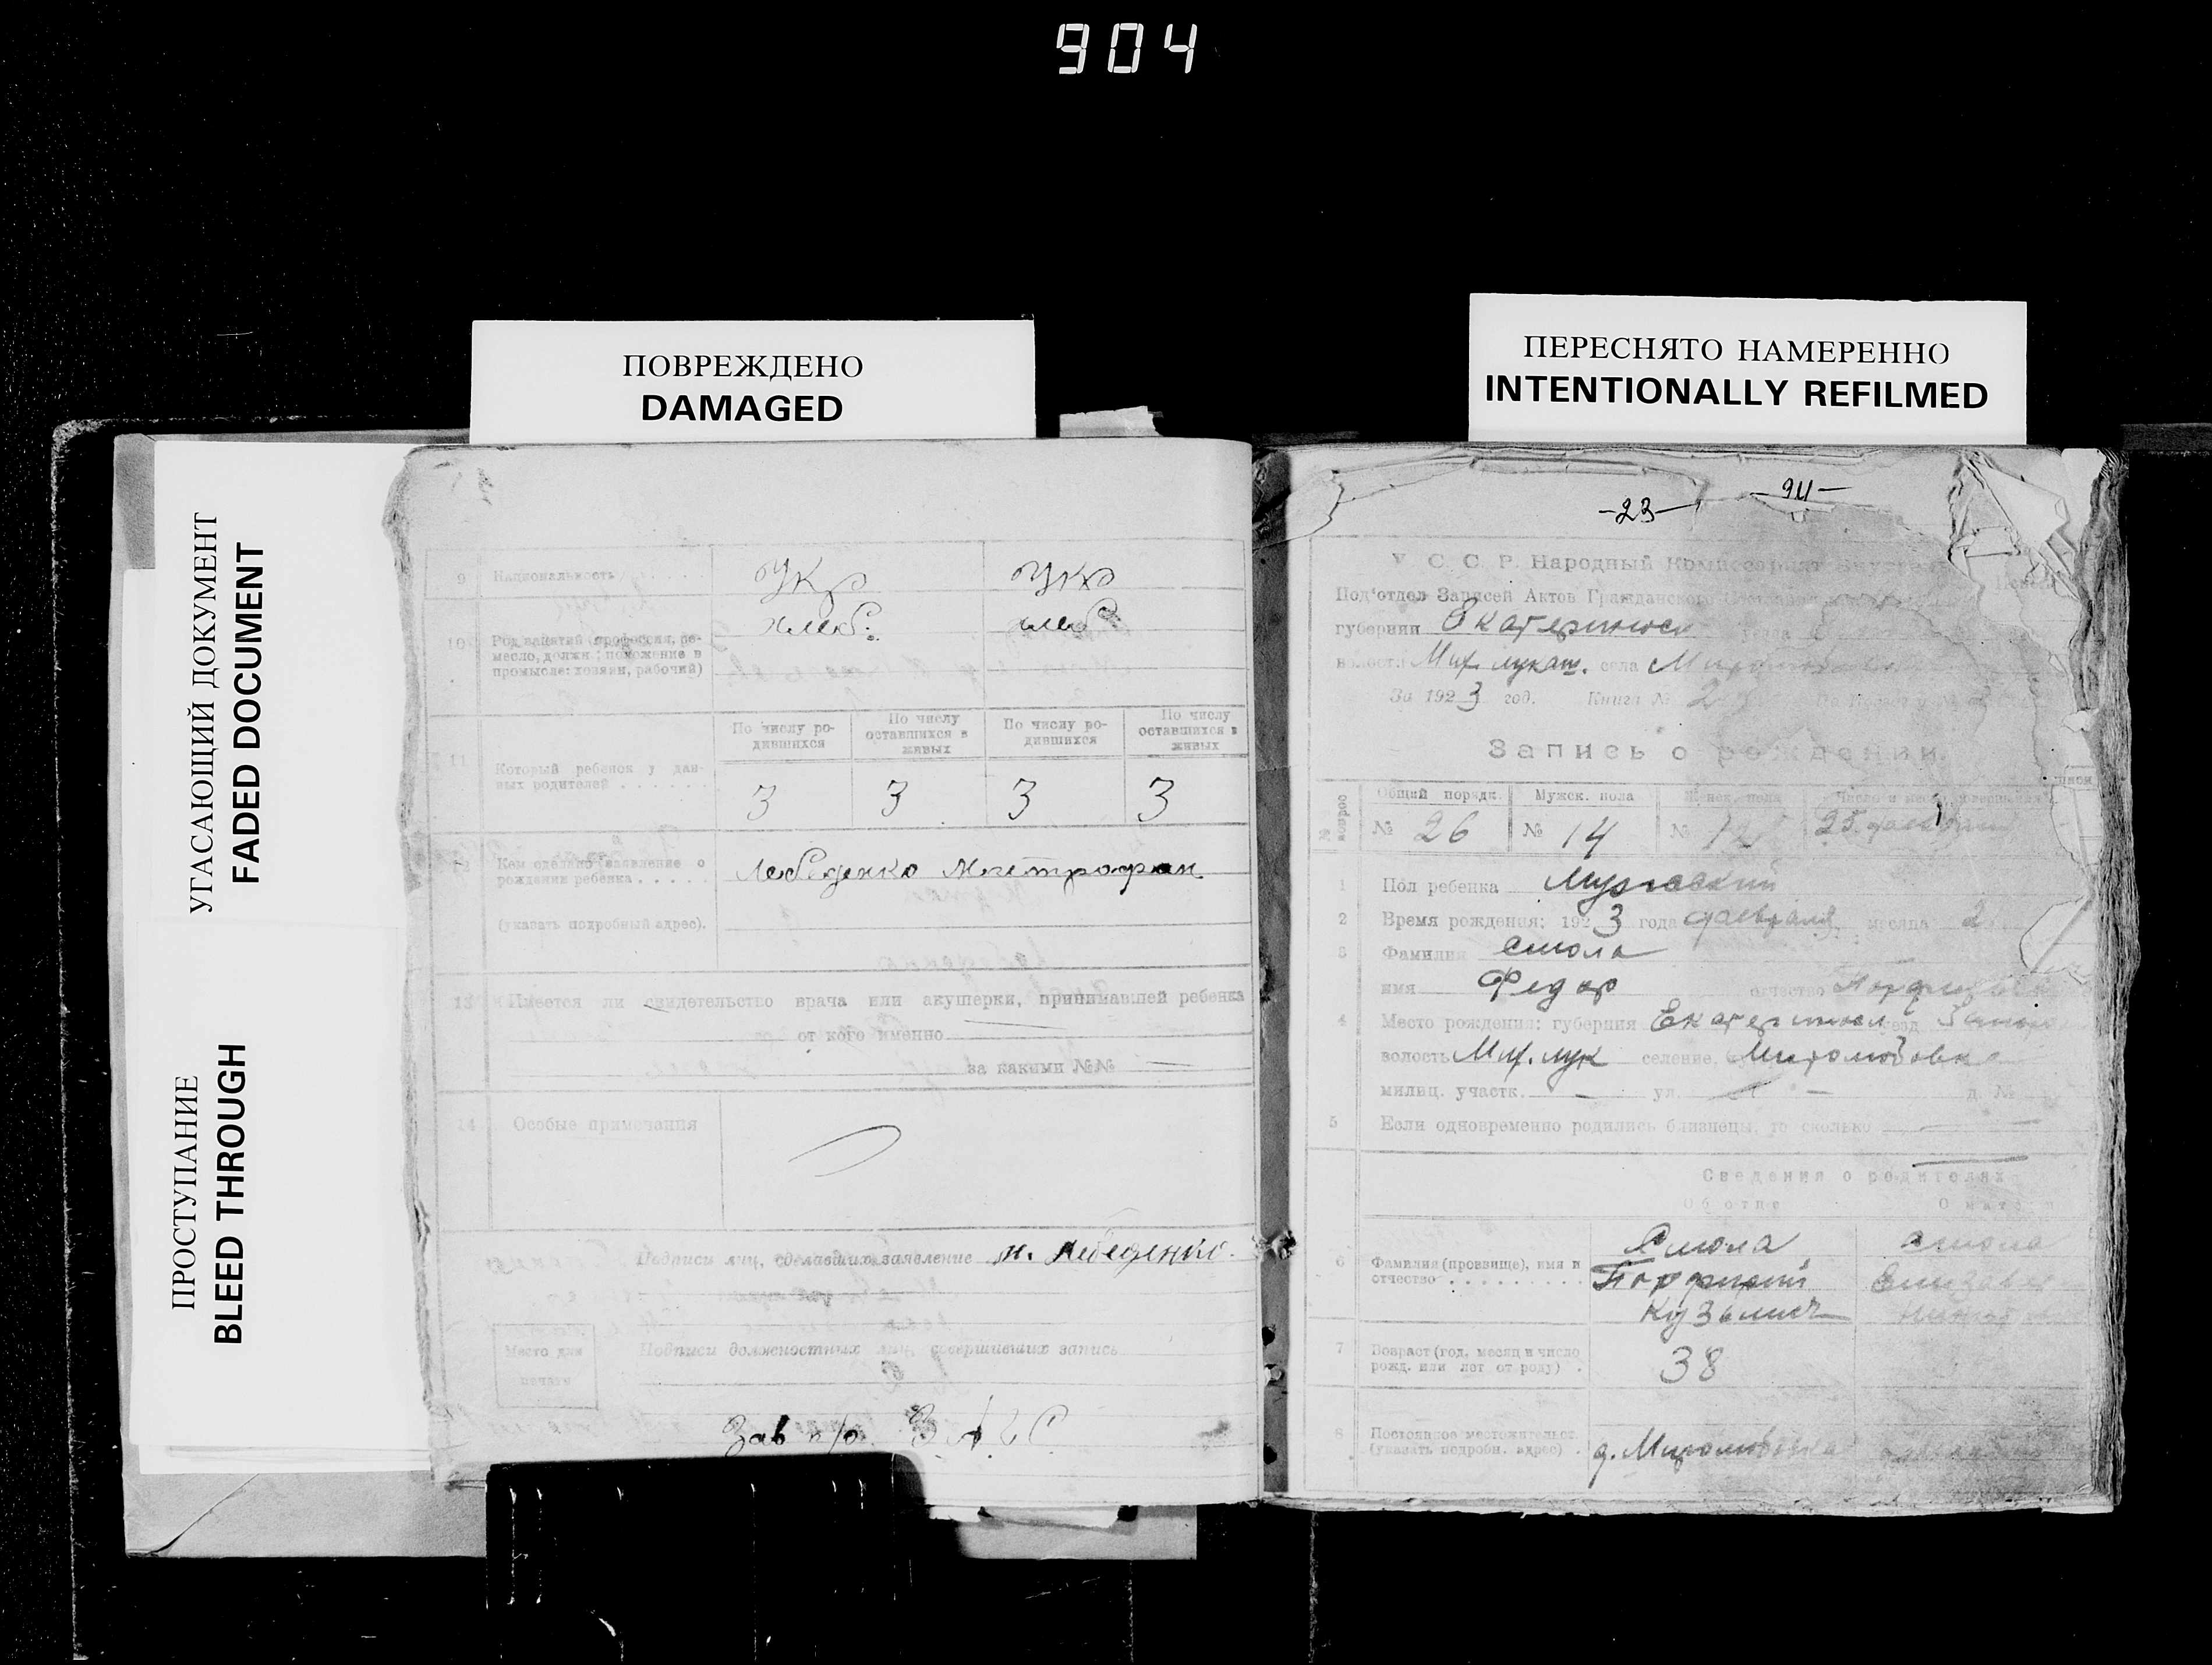 904
ПОВРЕЖДЕНО
DAMAGED
ПЕРЕСНЯТО НАМЕРЕННО
INTENTIONALLY REFILMED
УГАСАЮЩИЙ ДОКУМЕНТ
FADED DOCUMENT
ПРОСТУПАНИЕ
BLEED THROUGH
9 Национальность укр укр
10 Род занятий (профессия, ре-
месло, должн; положение в
промысле: хозяин, рабочий)
хлеб. хлеб.
По числу ро-
дившихся
По числу
оставшихся в
живых
По числу ро-
дившихся
По числу
оставшихся в
живых
11 Который ребенок у дан-
ных родителей . . . . . . .
3 3 3 3
Кем сделано заявление о
рождении ребенка . . . . .
Лебеденко Митрофан
(указать подробный адрес).
13 Имеется ли свидетельство врача или акушерки, принимавшей ребенка
от кого именно
за какими №№
14 Особые примечания
Подписи лиц, сделавших заявление м. Лебеденко.
Место для
печати
Подписи должностных лиц, совершивших запись
Зав п/о ЗАГС
-23- -94-
У. С. С. Р. Народный Комиссариат
Под'отдел Записей Актов Гражданского Состояния
губернии Екатериносл уезда
волости Мих лукаш. села
За 1923 год. Книга № 2
Запись о рождении.
№ вопрос
Общий порядк. Мужск. пола Женск. пола
№ 26 № 14 № 12 25 февраля
1 Пол ребенка Мужский
2 Время рождения: 1923 года февраля месяца 2
3 Фамилия Смола
имя Федор отчество
4 Место рождения: губерния Екатериносл уезд Запор
волость Мих. лук селение,
милиц. участк. — ул. — д. №
5 Если одновременно родились близнецы, то сколько
Сведения о родителях
Об отце О матери
6 Фамилия (прозвище), имя и
отчество . . . . . . . . . .
Смола
Порфирий
Кузьмич
Смола
Елизаве
7 Возраст (год, месяц и число
рожд. или лет от роду) .
38
8 Постоянное местожительст.
(указать подробн. адрес) .